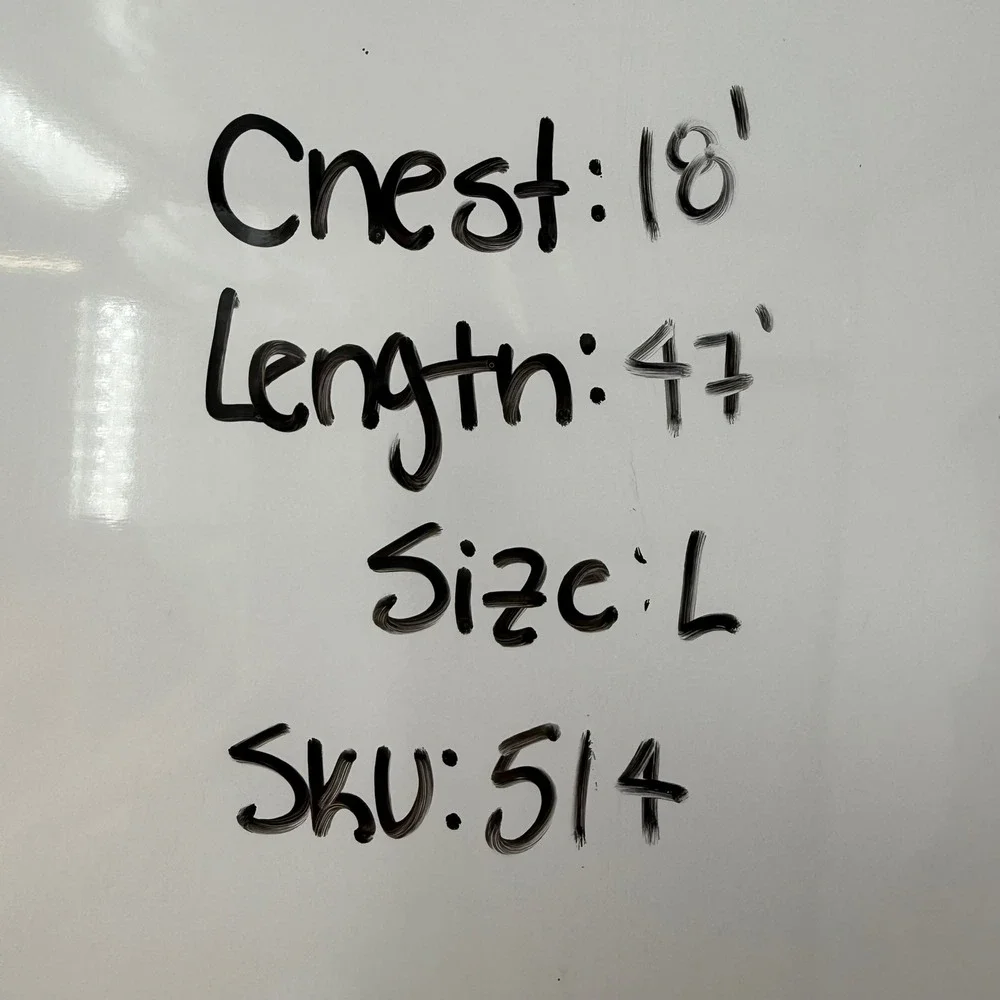 Chest: 18'
Length: 47'
Size: L
SKU: 514